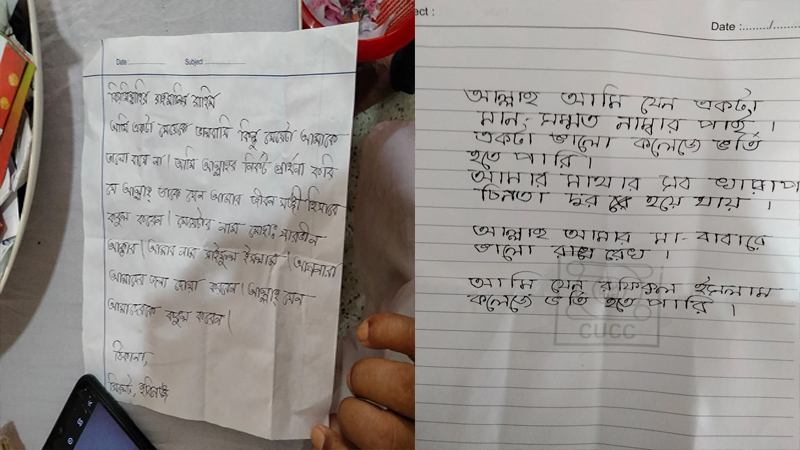 Date : Subject :
বিসমিল্লাহির রহমানির রাহিম
আমি একটা মেয়েকে ভালবাসি কিন্তু মেয়েটা আমাকে
ভালো বাসে না। আমি আল্লাহর নিকট প্রার্থনা করি
যে আল্লাহ্ তাকে যেন আমার জীবন সঙ্গী হিসাবে
কবুল করেন। মেয়েটার নাম মোছাঃ পারভীন
আক্তার। আমার নাম সাইফুল ইসলাম। আপনারা
আমাদের জন্য দোয়া করবেন। আল্লাহ্ যেন
আমাদেরকে কবুল করেন।
ঠিকানা,
সিলেট, হবিগঞ্জ
ect :
Date :......../........
আল্লাহ আমি যেন একটা
মান-সম্মত নাম্বার পাই।
একটা ভালো কলেজে ভর্তি
হতে পারি।
আমার মাথার সব খারাপ
চিনতা দুর হয়ে যায়।
আল্লাহ আমার মা-বাবারে
ভালো রেখ।
আমি যেন রফিকুল ইসলাম
কলেজে ভর্তি হতে পারি।
CUCC